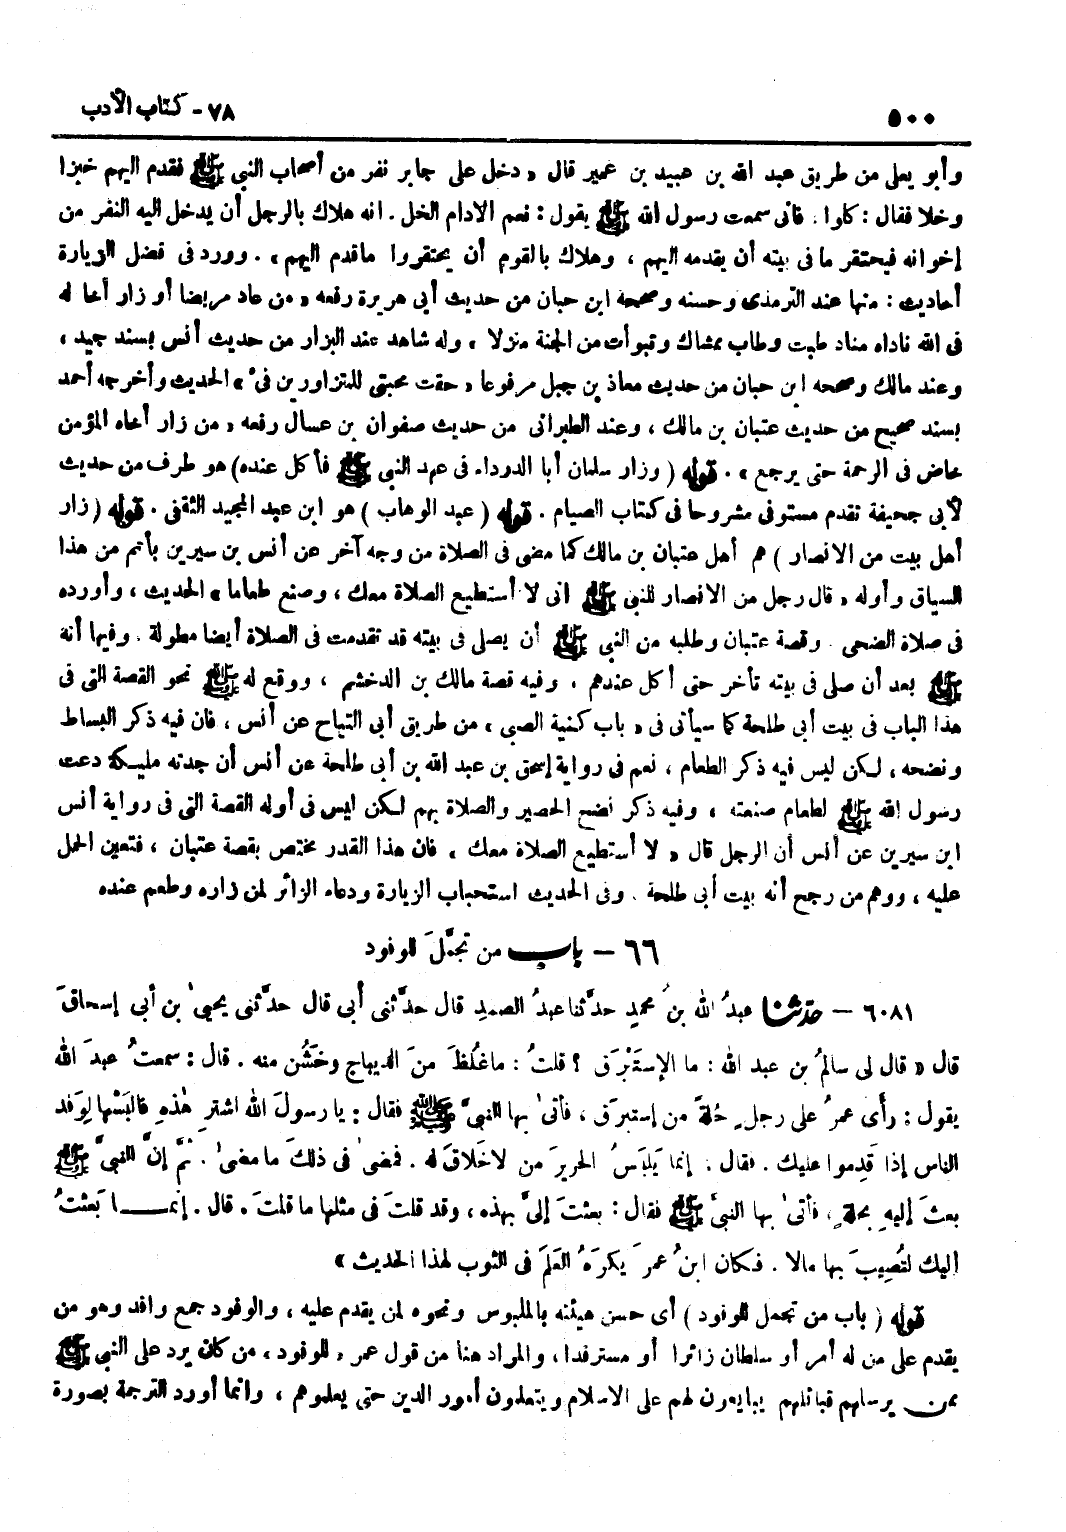 ٥٠٠ ٧٨ - كتاب الأدب
وأبو يعلى من طريق عبد الله بن عبيد بن عمير قال « دخل على جابر نفر من أصحاب النبي ﷺ فقدم اليهم خبزا
وخلا فقال : كلوا . فانى سمعت رسول الله ﷺ يقول : نعم الادام الخل . انه هلاك بالرجل أن يدخل اليه النفر من
إخوانه فيحتقر ما فى بيته أن يقدمه اليهم ، وهلاك بالقوم أن يحتقروا ماقدم اليهم » . وورد فى فضل الزيارة
أحاديث : منها عند الترمذى وحسنه وصححه ابن حبان من حديث أبى هريرة رفعه « من عاد مريضا أو زار أخا له
فى الله ناداه مناد طبت وطاب ممشاك وتبوأت من الجنة منزلا » وله شاهد عند البزار من حديث أنس بسند جيد ،
وعند مالك وصححه ابن حبان من حديث معاذ بن جبل مرفوعا « حقت محبتى للمتزاورين فىّ » الحديث وأخرجه أحمد
بسند صحيح من حديث عتبان بن مالك ، وعند الطبرانى من حديث صفوان بن عسال رفعه « من زار أخاه المؤمن
خاض فى الرحمة حتى يرجع » . قوله ( وزار سلمان أبا الدرداء فى عهد النبى ﷺ فأكل عنده) هو طرف من حديث
لأبى جحيفة تقدم مستوفى مشروحا فى كتاب الصيام . قوله ( عبد الوهاب ) هو ابن عبد المجيد الثقفى . قوله ( زار
أهل بيت من الانصار ) هم أهل عتبان بن مالك كما مضى فى الصلاة من وجه آخر عن أنس بن سيرين بأتم من هذا
السياق وأوله « قال رجل من الانصار للنبى ﷺ انى لا أستطيع الصلاة معك ، وصنع طعاما » الحديث ، وأورده
فى صلاة الضحى . وقصة عتبان وطلبه من النبى ﷺ أن يصلى فى بيته قد تقدمت فى الصلاة أيضا مطولة . وفيها أنه
ﷺ بعد أن صلى فى بيته تأخر حتى أكل عندهم ، وفيه قصة مالك بن الدخشم ، ووقع له ﷺ نحو القصة التى فى
هذا الباب فى بيت أبى طلحة كما سيأتى فى « باب كنية الصبى » من طريق أبى التياح عن أنس ، فان فيه ذكر البساط
ونضحه ، لكن ليس فيه ذكر الطعام ، نعم فى رواية إسحق بن عبد الله بن أبى طلحة عن أنس أن جدته مليكة دعت
رسول الله ﷺ لطعام صنعته ، وفيه ذكر نضح الحصير والصلاة بهم لكن ليس فى أوله القصة التى فى رواية أنس
ابن سيرين عن أنس أن الرجل قال « لا أستطيع الصلاة معك » فان هذا القدر مختص بقصة عتبان ، فتعين الحمل
عليه ، ووهم من رجح أنه بيت أبى طلحة . وفى الحديث استحباب الزيارة ودعاء الزائر لمن زاره وطعم عنده
٦٦ - باب من تجمَّلَ للوفود
٦٠٨١ - حدّثنا عبدُ الله بنُ محمدٍ حدَّثنا عبدُ الصمدِ قال حدَّثنى أبى قال حدَّثنى يحيىٰ بن أبى إسحاقَ
قال « قال لى سالمُ بن عبد الله : ما الإستَبْرَق ؟ قلتُ : ماغلُظَ منَ الديباج وخَشُن منه . قال : سمعتُ عبدَ الله
يقول : رأى عمرُ على رجلٍ حُلةً من إستبرَق ، فأتىٰ بها النبىَّ ﷺ فقال : يا رسولَ الله اشترِ هٰذهِ فالبَسْها لِوَفد
الناس إذا قَدِموا عليك . فقال : إنما يَلبَسُ الحريرَ من لاخَلاقَ له . فمضىٰ فى ذلكَ ما مضىٰ . ثمَّ إنَّ النبىَّ ﷺ
بعثَ إليهِ بحلةٍ ، فأتىٰ بها النبىَّ ﷺ فقال : بعثتَ إلىَّ بهذه ، وقد قلتَ فى مثلها ما قلتَ . قال . إنمـــا بَعثتُ
إليك لتُصِيبَ بها مالا . فكان ابنُ عمرَ يكرَهُ العَلَم فى الثوب لهذا الحديث »
قوله ( باب من تجمل للوفود ) أى حسن هيئته بالملبوس ونحوه لمن يقدم عليه ، والوفود جمع وافد وهو من
يقدم على من له أمر أو سلطان زائرا أو مسترفدا ، والمراد هنا من قول عمر « للوفود » من كان يرد على النبى ﷺ
ممن يرسلهم قبائلهم يبايعون لهم على الاسلام ويتعلمون أمور الدين حتى يعلموهم ، وانما أورد الترجمة بصورة